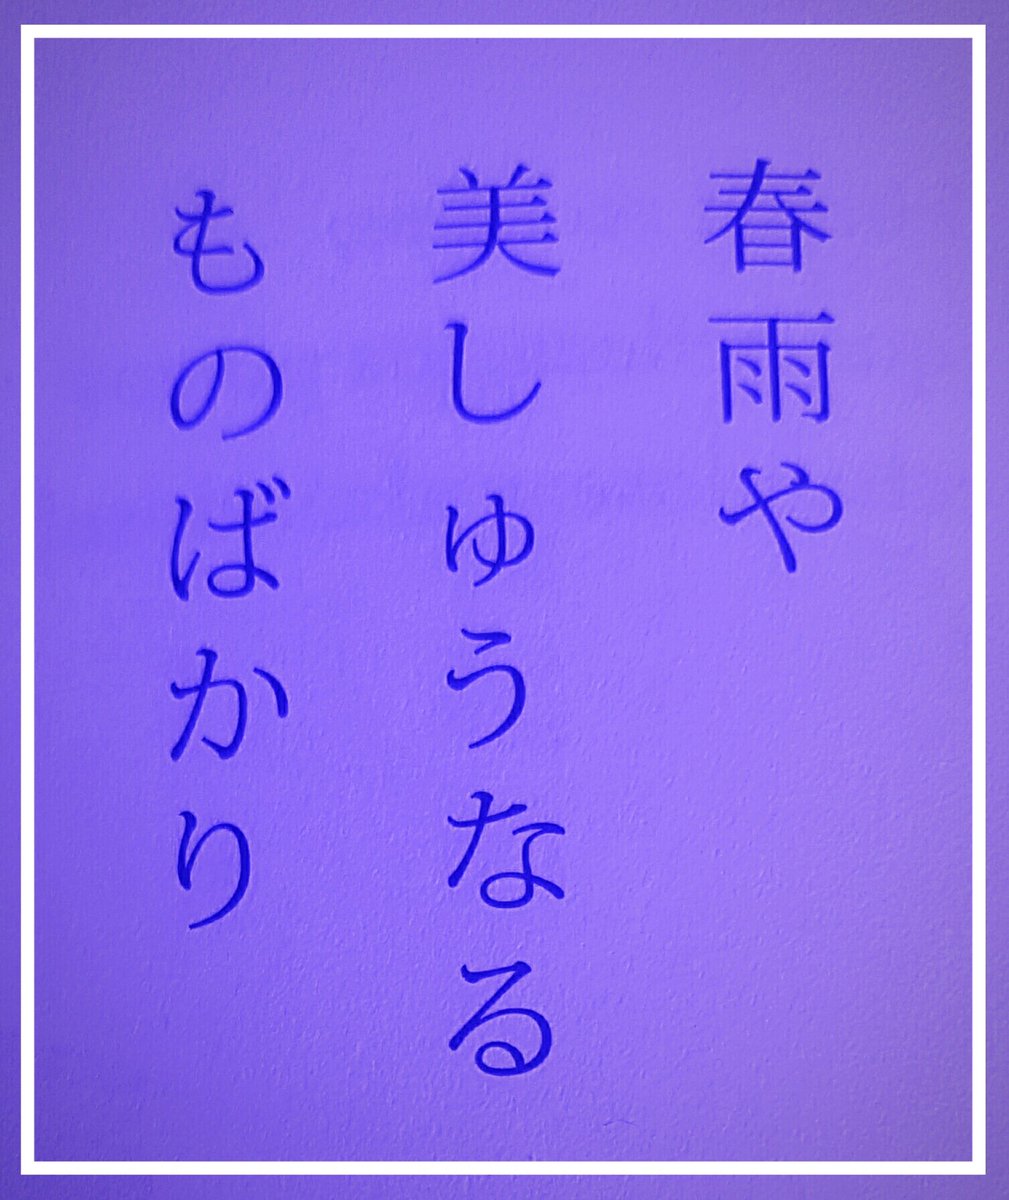 春雨や
美しゅうなる
ものばかり